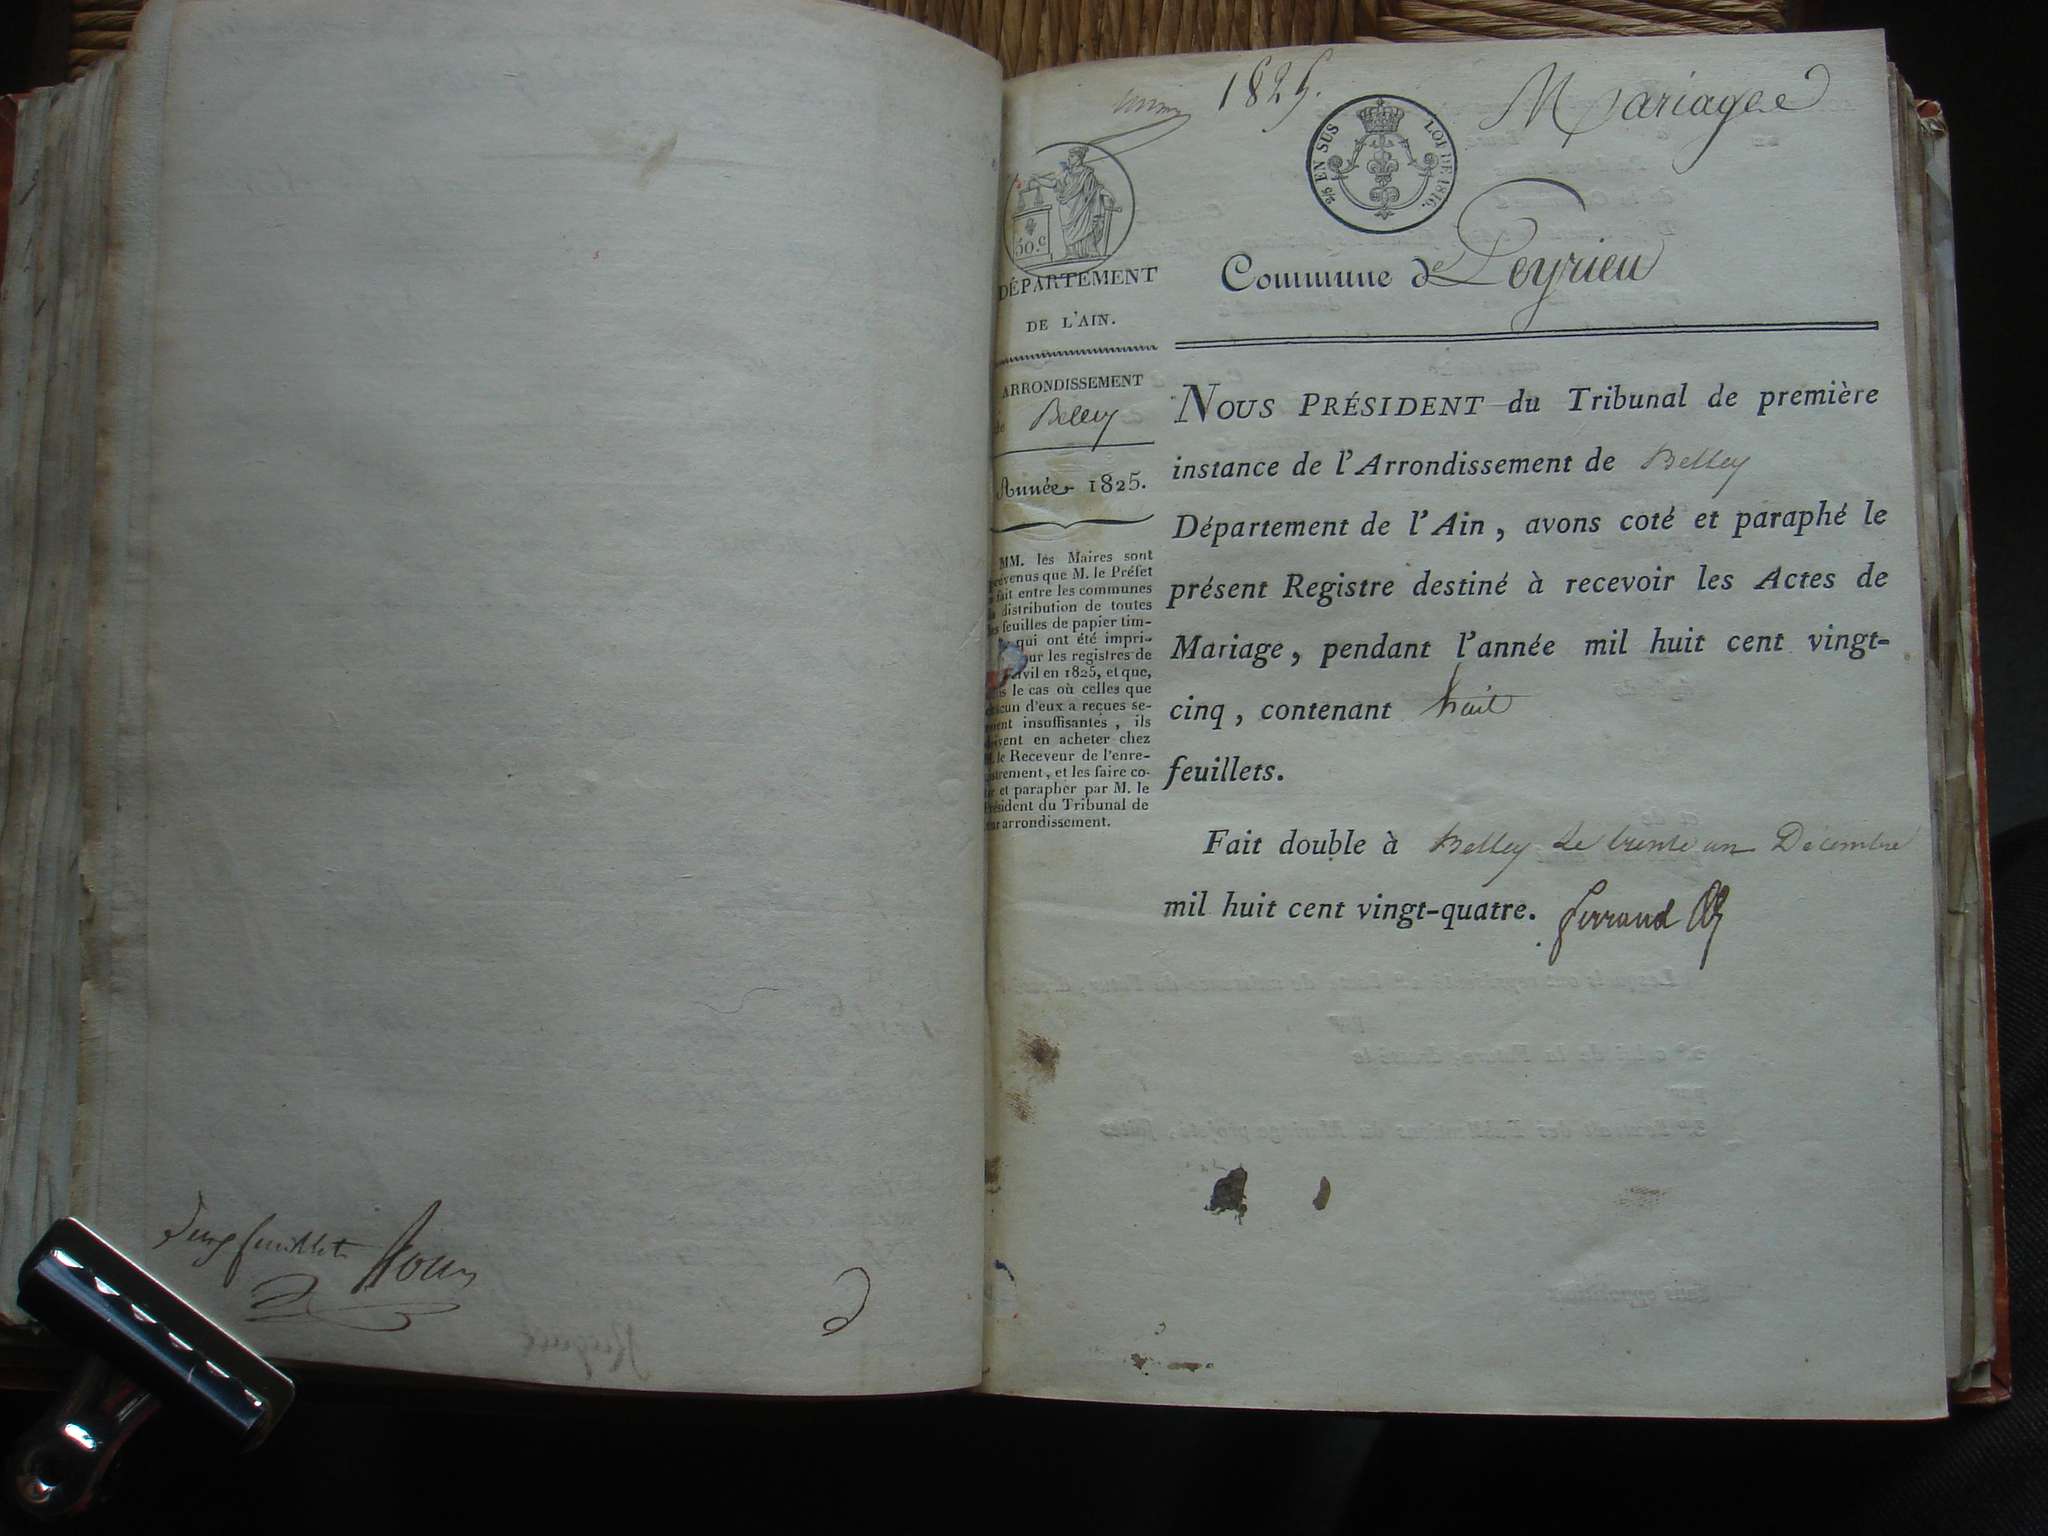 feuillet
1825.
Mariage
2/5 EN SUS
LOI DE 1816.
50.c
DÉPARTEMENT
DE L'AIN.
Commune de Peyrieu
ARRONDISSEMENT
de Belley
Année 1825.
MM. les Maires sont
prévenus que M. le Préfet
a fait entre les communes
la distribution de toutes
les feuilles de papier tim-
qui ont été impri-
pour les registres de
civil en 1825, et que,
dans le cas où celles que
chacun d'eux a reçues se-
roient insuffisantes, ils
doivent en acheter chez
M. le Receveur de l'enre-
gistrement, et les faire co-
ter et parapher par M. le
Président du Tribunal de
leur arrondissement.
NOUS PRÉSIDENT du Tribunal de première
instance de l'Arrondissement de Belley
Département de l'Ain, avons coté et paraphé le
présent Registre destiné à recevoir les Actes de
Mariage, pendant l'année mil huit cent vingt-
cinq, contenant huit
feuillets.
Fait double à Belley le trente un Décembre
mil huit cent vingt-quatre. ferrand